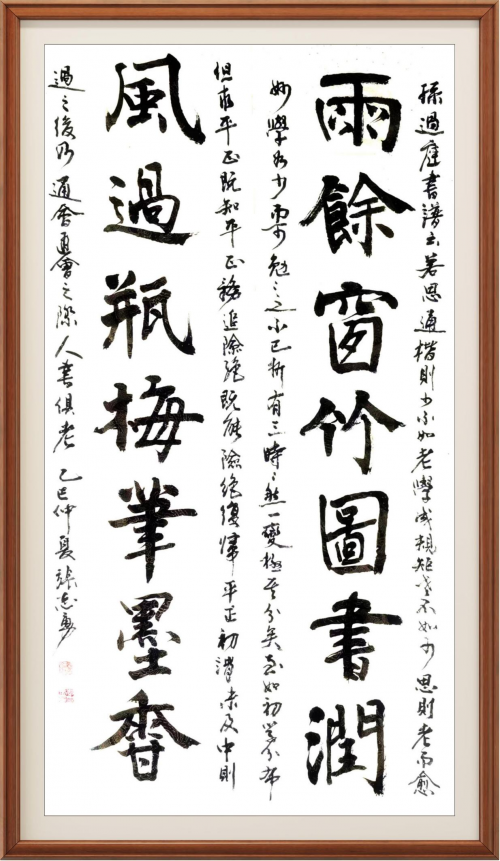 孫過庭書譜云若思通楷則少不如老學成規矩老不如少思則老而愈
雨餘窗竹圖書潤
妙學乃少而可勉〻之不已抑有三時〻然一變極其分矣至如初學分布
但求平正既知平正務追險絕既能險絕復歸平正初謂未及中則
風過瓶梅筆墨香
過之後乃通會通會之際人書俱老 乙巳仲夏張志勇